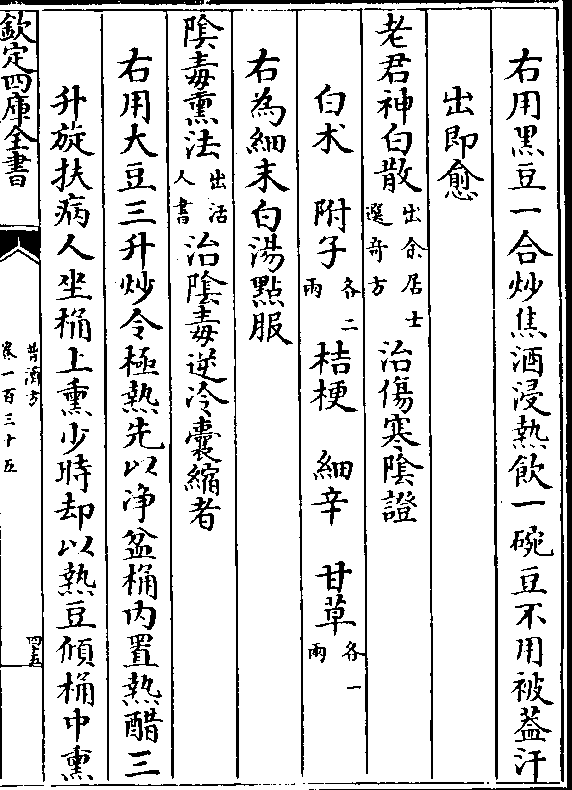 右用黑豆一合炒焦酒浸熱飲一碗豆不用被葢汗
出即愈
老君神白散出余居士選竒方治傷寒隂證
白朮 附子各二兩 桔梗 細辛 甘草各一兩
右為細末白湯㸃服
隂毒熏法出活人書治隂毒逆冷囊縮者
右用大豆三升炒令極熱先以净盆桶内置熱醋三
升旋扶病人坐桶上熏少時却以熱豆傾桶中熏
欽定四庫全書
普濟方
卷一百三十五
四十五